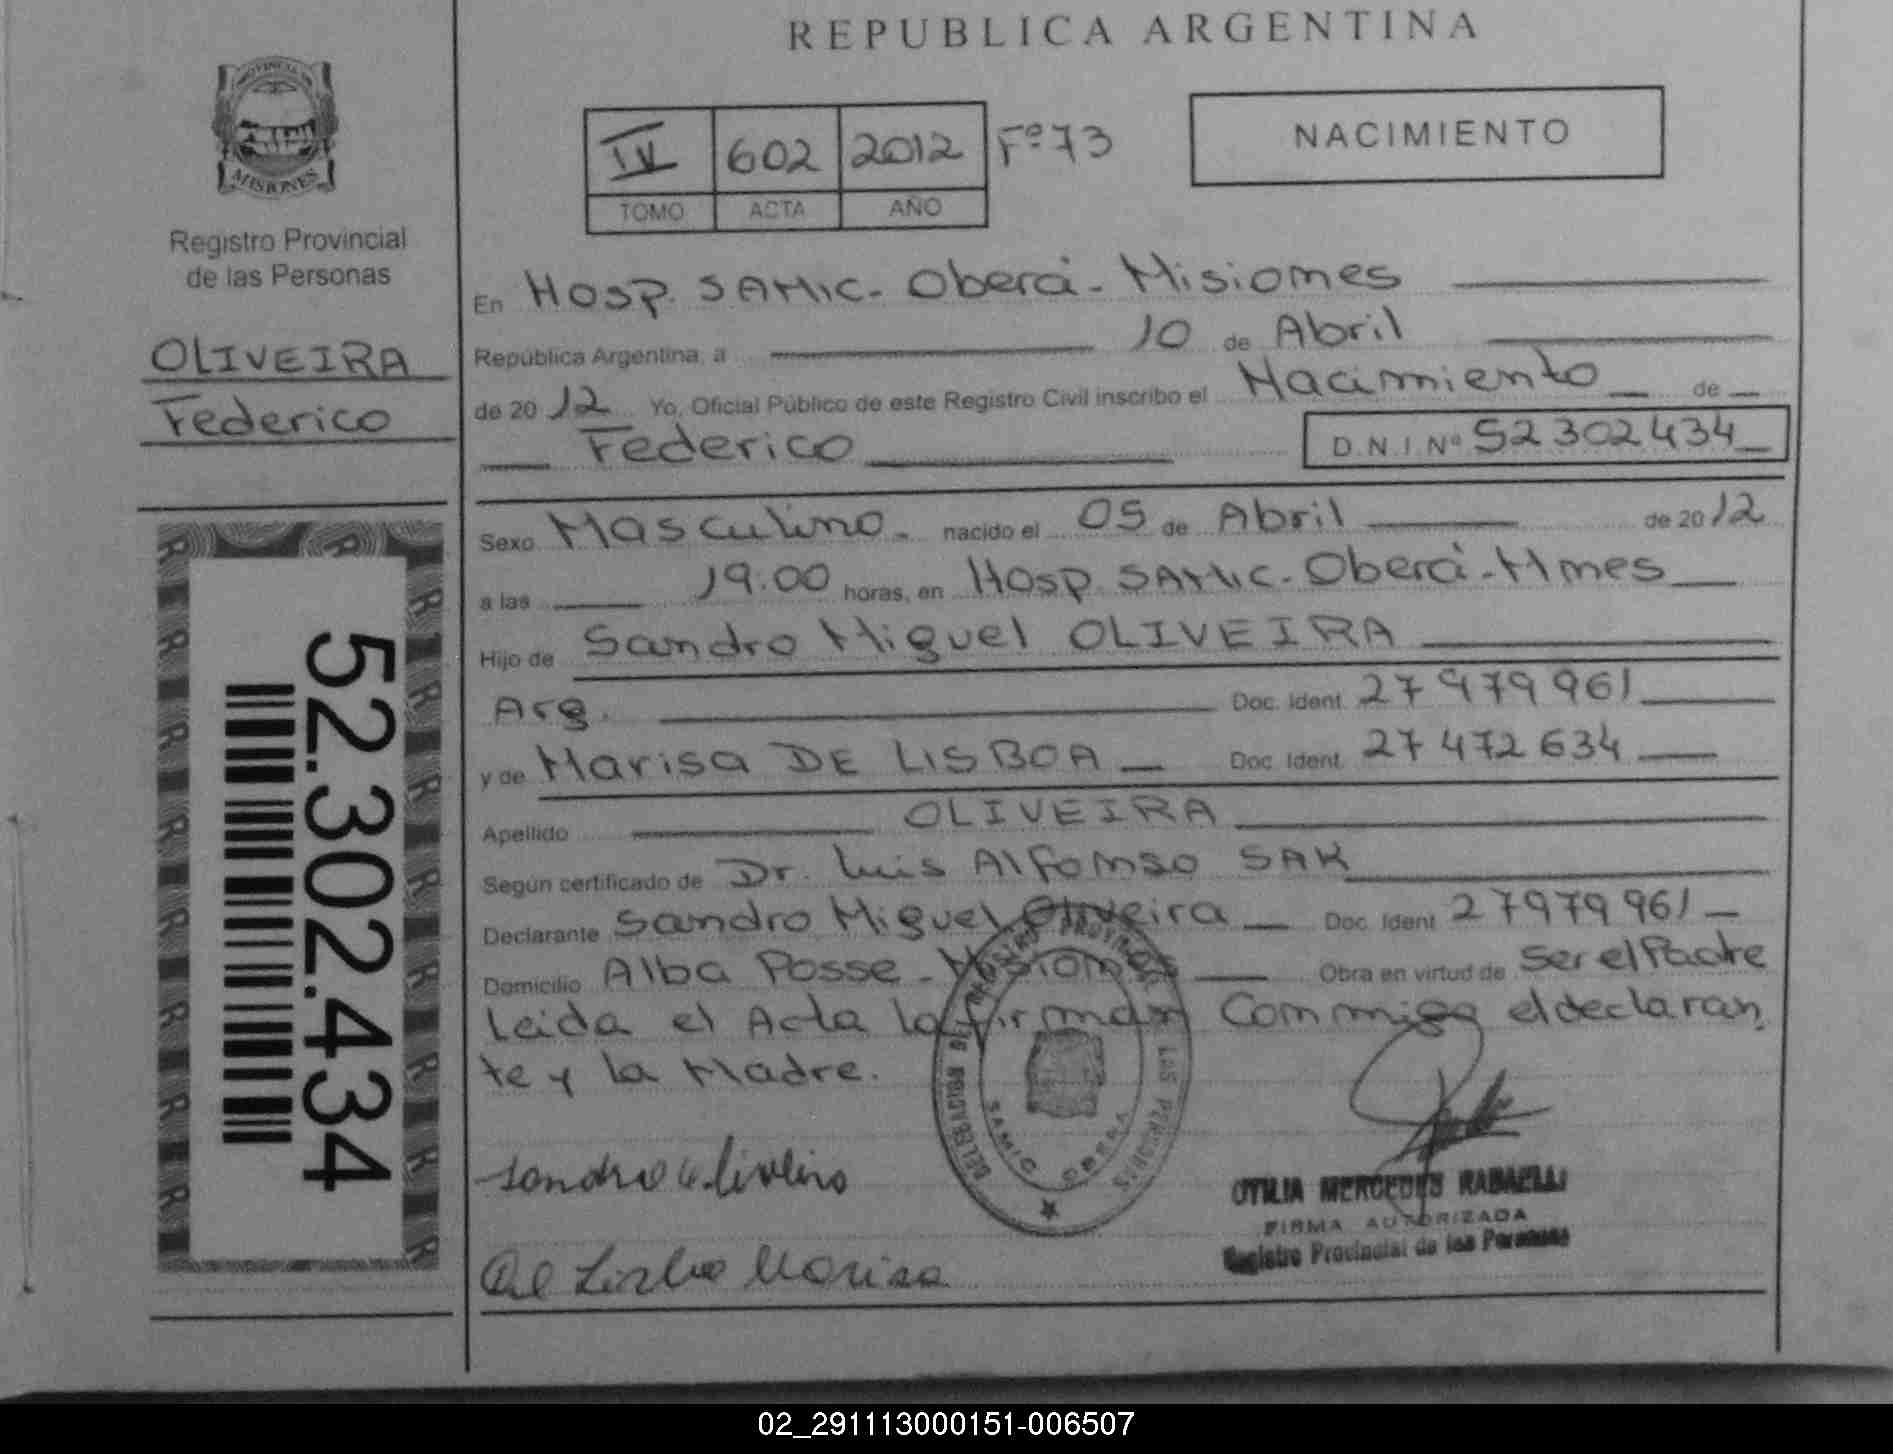 REPUBLICA ARGENTINA
PROVINCIA DE
MISIONES
Registro Provincial
de las Personas
OLIVEIRA
Federico
52.302.434
IV 602 2012 Fº 73
TOMO ACTA AÑO
NACIMIENTO
En Hosp. SAMIC - Oberá - Misiones
República Argentina, a 10 de Abril
de 2012 Yo, Oficial Público de este Registro Civil inscribo el Nacimiento de
Federico D.N.I. Nº 52302434
Sexo Masculino nacido el 05 de Abril de 2012
a las 19:00 horas, en Hosp. SAMIC - Oberá - Mnes
Hijo de Sandro Miguel OLIVEIRA
Arg. Doc. Ident 27 979 961
y de Marisa DE LISBOA Doc. Ident. 27 472 634
Apellido OLIVEIRA
Según certificado de Dr. Luis Alfonso SAK
Declarante Sandro Miguel Oliveira Doc. Ident 27979961
Domicilio Alba Posse - Misiones Obra en virtud de Ser el Padre
Leida el Acta la firman Conmigo el declaran
te y la Madre.
DELEGACION DEL REGISTRO PROVINCIAL DE LAS PERSONAS
SAMIC OBERA
Sandro Oliveira
De Lisboa Marisa
OTILIA MERCEDES RABAELLI
FIRMA AUTORIZADA
Registro Provincial de las Personas
02_291113000151-006507